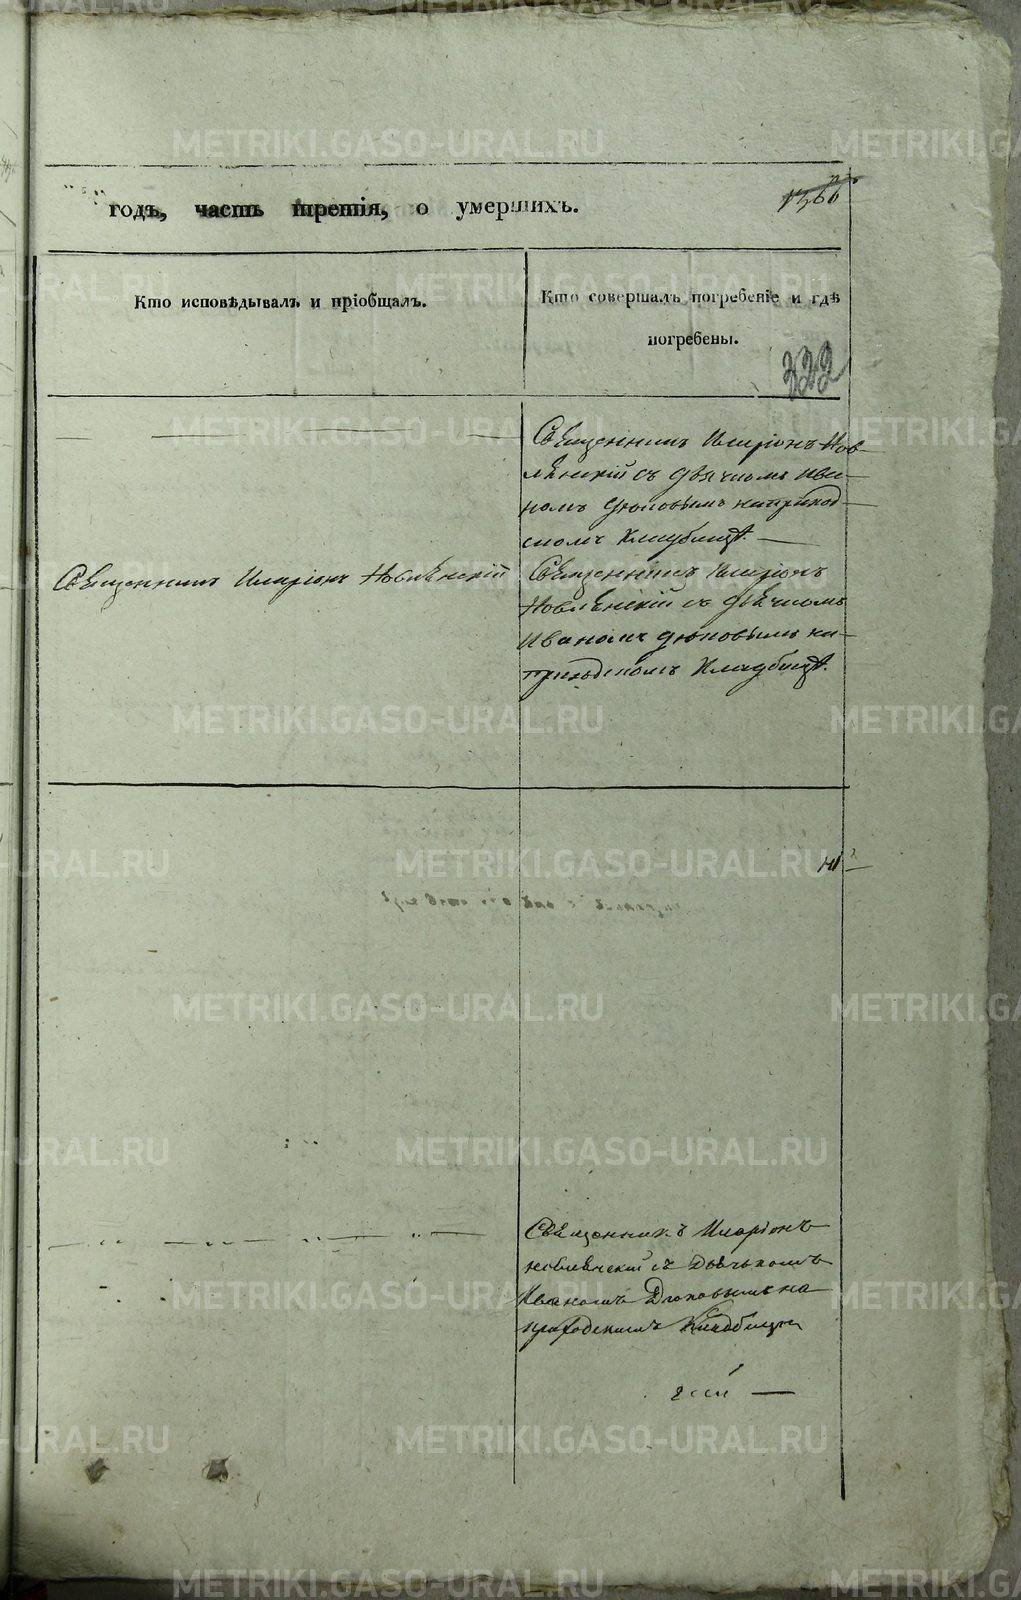 годъ, часть третія, о умершихъ.
1366
Кто исповѣдывалъ и пріобщалъ.
Кто совершалъ погребеніе и гдѣ
погребены.
322
Священникъ Иларіонъ Нов-
лѣнскій съ дьячкомъ Ива-
номъ Дюковымъ на приход-
скомъ Кладбищѣ. —
Священникъ Иларіонъ Новлѣнскій
Священникъ Иларіонъ
Новлѣнскій съ дьячкомъ
Иваномъ Дюковымъ на
приходскомъ Кладбищѣ.
Священникъ Иларіонъ
Новленскій съ Дьячкомъ
Иваномъ Дюковымъ на
приходскомъ Кладбищѣ
METRIKI.GASO-URAL.RU